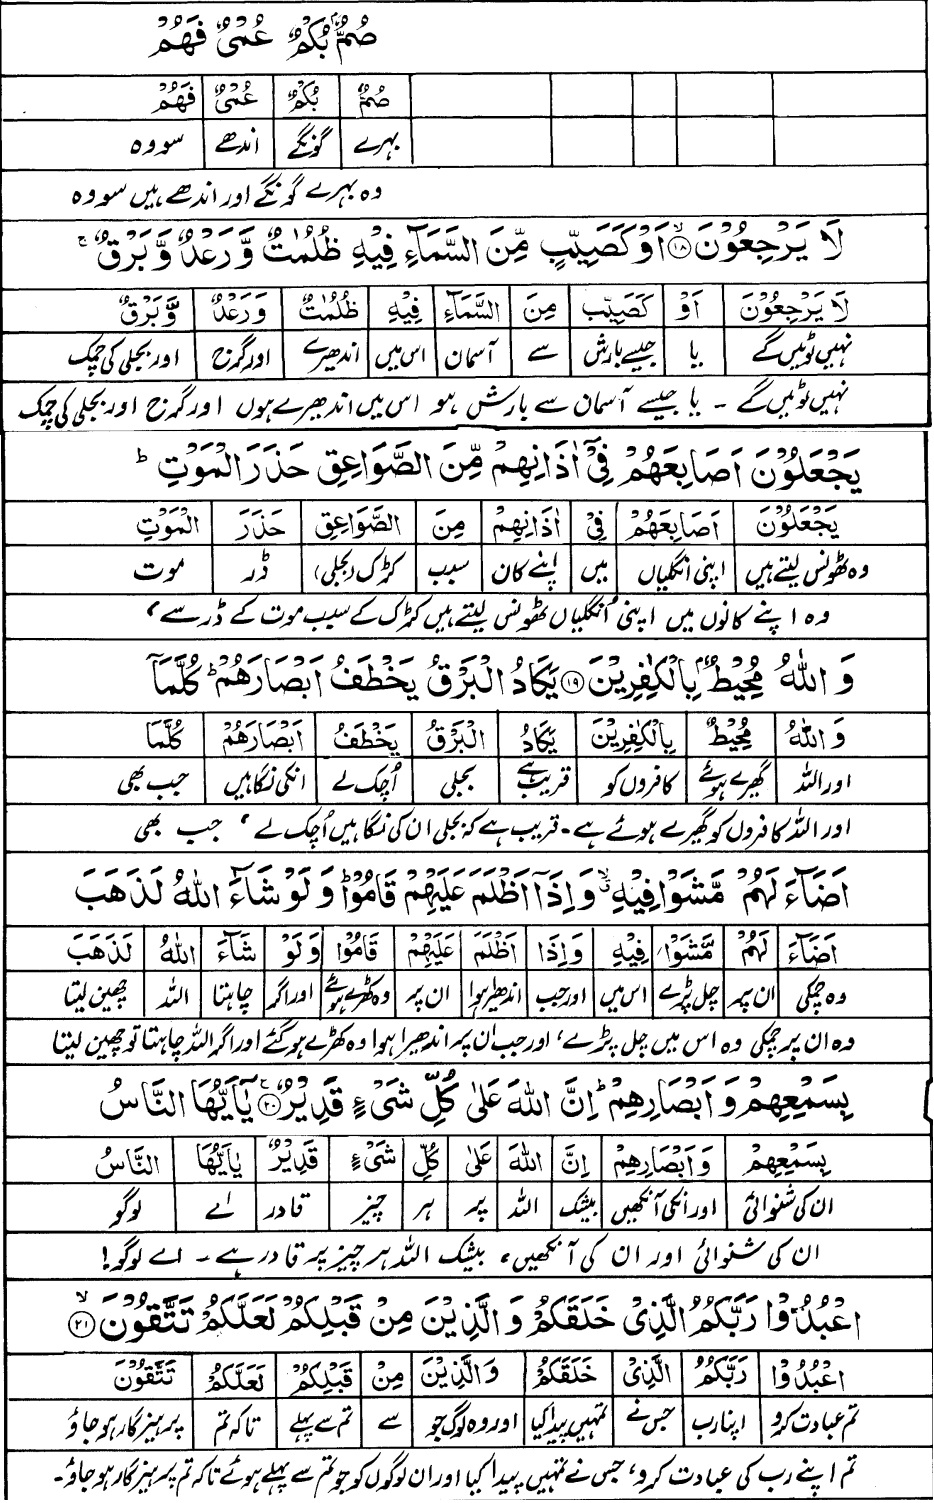 صُمٌّۢ بُكْمٌ عُمْیٌ فَهُمْ
صُمٌّۢ بُكْمٌ عُمْیٌ فَهُمْ
بہرے گونگے اندھے سو وہ
وہ بہرے گونگے اور اندھے ہیں سو وہ
لَا یَرْجِعُوْنَ ۙ۝۱۸ اَوْ كَصَیِّبٍ مِّنَ السَّمَآءِ فِیْهِ ظُلُمٰتٌ وَّ رَعْدٌ وَّ بَرْقٌ ۚ
لَا یَرْجِعُوْنَ اَوْ كَصَیِّبٍ مِنَ السَّمَآءِ فِیْهِ ظُلُمٰتٌ وَرَعْدٌ وَّبَرْقٌ
نہیں لوٹیں گے یا جیسے بارش سے آسمان اس میں اندھیرے اور گرج اور بجلی کی چمک
نہیں لوٹیں گے ۔ یا جیسے آسمان سے بارش ہو اس میں اندھیرے ہوں اور گرج اور بجلی کی چمک
یَجْعَلُوْنَ اَصَابِعَهُمْ فِیْۤ اٰذَانِهِمْ مِّنَ الصَّوَاعِقِ حَذَرَ الْمَوْتِ ؕ
یَجْعَلُوْنَ اَصَابِعَهُمْ فِیْۤ اٰذَانِهِمْ مِنَ الصَّوَاعِقِ حَذَرَ الْمَوْتِ
وہ ٹھونس لیتے ہیں اپنی انگلیاں میں اپنے کان سبب کڑک (بجلی) ڈر موت
وہ اپنے کانوں میں اپنی انگلیاں ٹھونس لیتے ہیں کڑک کے سبب موت کے ڈر سے،
وَ اللّٰهُ مُحِیْطٌۢ بِالْكٰفِرِیْنَ ۝۱۹ یَكَادُ الْبَرْقُ یَخْطَفُ اَبْصَارَهُمْ ؕ كُلَّمَاۤ
وَ اللّٰهُ مُحِیْطٌ بِالْكٰفِرِیْنَ یَكَادُ الْبَرْقُ یَخْطَفُ اَبْصَارَهُمْ كُلَّمَا
اور اللہ گھیرے ہوئے کافروں کو قریب ہے بجلی اُچک لے انکی نگاہیں جب بھی
اور اللہ کافروں کو گھیرے ہوئے ہے۔ قریب ہے کہ بجلی ان کی نگاہیں اُچک لے، جب بھی
اَضَآءَ لَهُمْ مَّشَوْا فِیْهِ ۙۗ وَ اِذَاۤ اَظْلَمَ عَلَیْهِمْ قَامُوْا ؕ وَ لَوْ شَآءَ اللّٰهُ لَذَهَبَ
اَضَآءَ لَهُمْ مَّشَوْا فِیْهِ وَاِذَا اَظْلَمَ عَلَیْهِمْ قَامُوْا وَلَوْ شَآءَ اللّٰهُ لَذَهَبَ
وہ چمکی ان پر چل پڑے اس میں اور جب اندھیرا ہوا ان پر وہ کھڑے ہوئے اور اگر چاہتا اللہ چھین لیتا
وہ ان پر چمکی وہ اس میں چل پڑے، اور جب ان پر اندھیرا ہوا وہ کھڑے ہو گئے اور اگر اللہ چاہتا تو چھین لیتا
بِسَمْعِهِمْ وَ اَبْصَارِهِمْ ؕ اِنَّ اللّٰهَ عَلٰی كُلِّ شَیْءٍ قَدِیْرٌ ۝۲۰ یٰۤاَیُّهَا النَّاسُ
بِسَمْعِهِمْ وَ اَبْصَارِهِمْ اِنَّ اللّٰهَ عَلٰی كُلِّ شَیْءٍ قَدِیْرٌ یٰاَیُّهَا النَّاسُ
ان کی شنوائی اور انکی آنکھیں بیشک اللہ پر ہر چیز قادر اے لوگو
ان کی شنوائی اور ان کی آنکھیں، بیشک اللہ ہر چیز پر قادر ہے ۔ اے لوگو!
اعْبُدُوْا رَبَّكُمُ الَّذِیْ خَلَقَكُمْ وَ الَّذِیْنَ مِنْ قَبْلِكُمْ لَعَلَّكُمْ تَتَّقُوْنَ ۙ۝۲۱
اعْبُدُوْا رَبَّكُمُ الَّذِیْ خَلَقَكُمْ وَالَّذِیْنَ مِنْ قَبْلِكُمْ لَعَلَّكُمْ تَتَّقُوْنَ
تم عبادت کرو اپنا رب جس نے تمہیں پیدا کیا اور وہ لوگ جو سے تم سے پہلے تاکہ تم پرہیزگار ہو جاؤ
تم اپنے رب کی عبادت کرو، جس نے تمہیں پیدا کیا اور ان لوگوں کو جو تم سے پہلے ہوئے تاکہ تم پرہیزگار ہو جاؤ۔